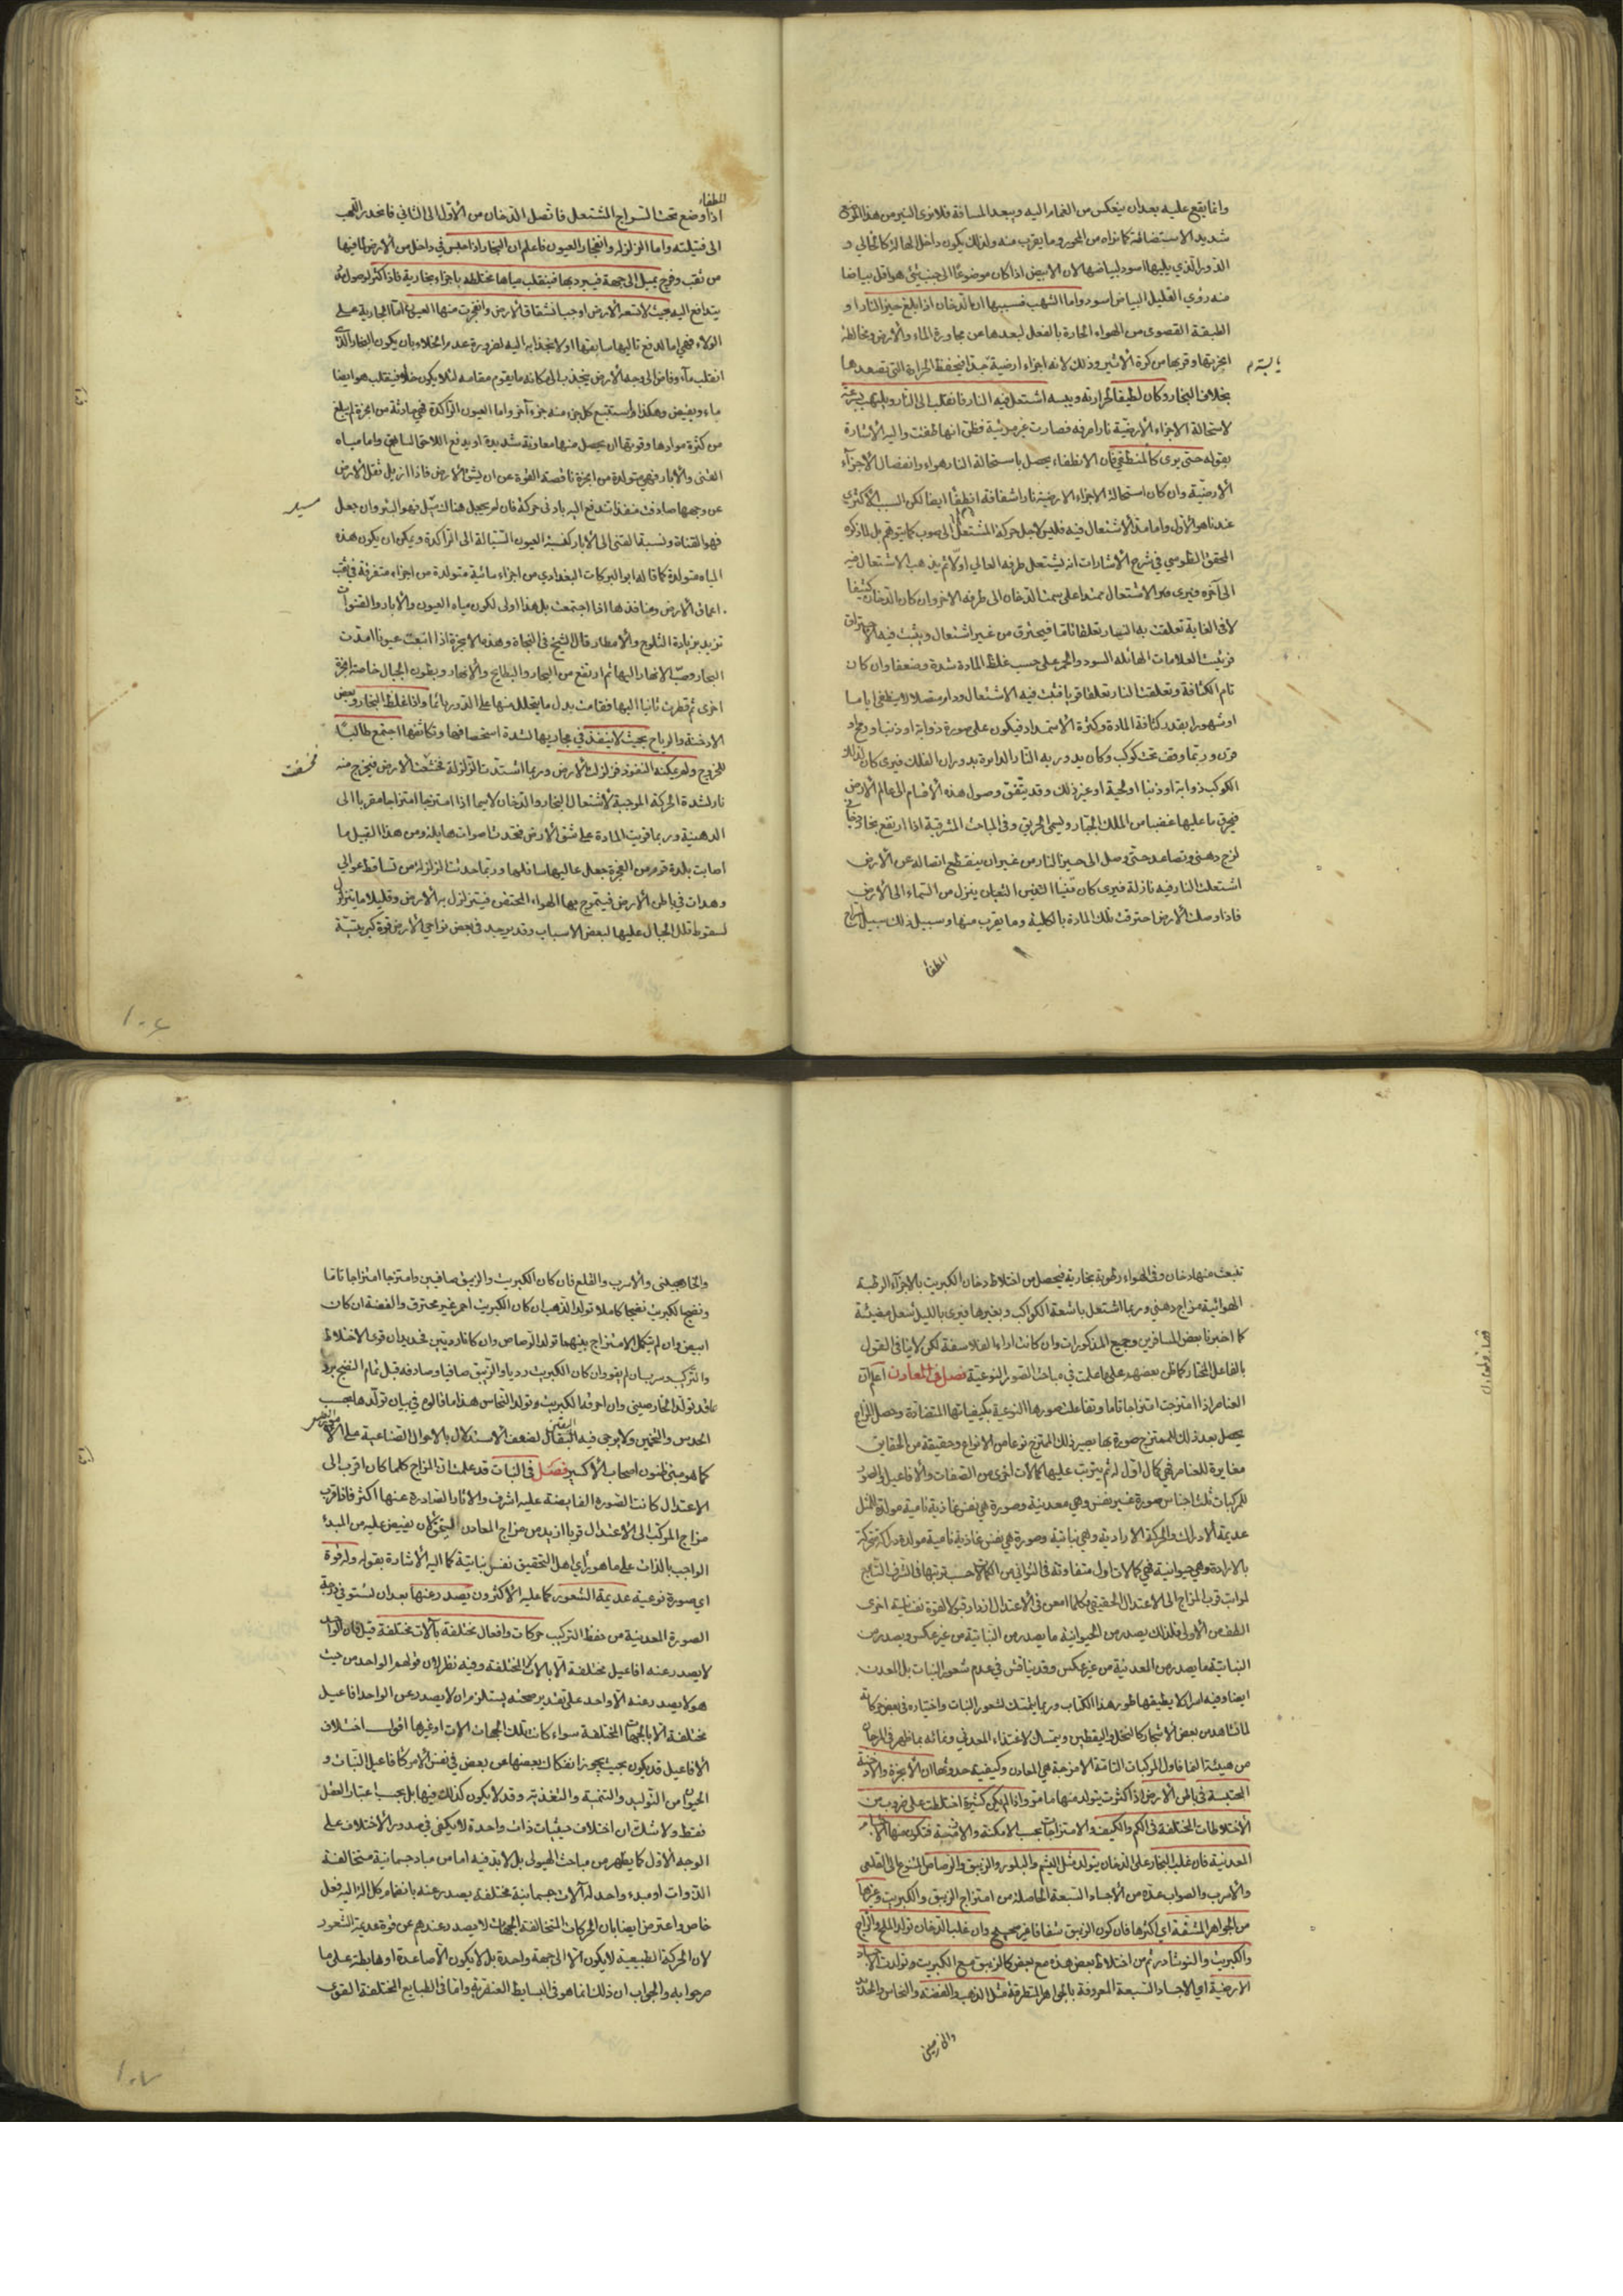 وانما يقع عليه بعد ان ينعكس من القمر اليه ويبعد المسافة فلا نرى النير من هذا الموضع
شديد الاستضائة كما نراه من المحور وما يقرب منه ولذلك يكون داخل الهالة كالخالي و
الذي يليها اسود لبياضها لان الابيض اذا كان موضوعا الى جنب شئ هو اقل بياضا
منه رؤي القليل البياض اسود واما الشهب فسببها ان الدخان اذا بلغ حيز النار او
الطبقة القصوى من الهواء الحارة بالفعل لبعدها عن مجاورة الماء والارض ومخالطة
ابخرتها وقربها من كرة الاثير وذلك لانه اجزاء ارضية جدا فيحفظ الحرارة التى تصعدها
بخلاف البخار وكان لطيفا لحرارته ويبسه اشتعل فيه النار فانقلب الى النار ويلتهب بسرعة
لاستحالة الاجزاء الارضية نارا صرفه فصارت غير مرئية فظن انها طفئت واليه الاشارة
بقوله حتى يرى كالمنطفى فان الانطفاء يحصل باستحالة النار هواء وانفصال الاجزاء
الارضية وان كان استحالة الاجزاء الارضية نارا شفافة انطفا ايضا لكن السبب الاكثرى
عندنا هو الاول واما مدة الاشتعال فيه فليس لاجل حركة المشتعل الى صوب كما يتوهم بل لما ذكره
المحقق الطوسي في شرح الاشارات انه يشتعل طرفه العالي اولا ثم يذهب الاشتعال فيه
الى آخره فيرى الاشتعال ممتدا على سمت الدخان الى طرفه الاخر وان كان الدخان كثيفا
لا في الغاية تعلقت به النار تعلقا تاما فيحترق من غير اشتعال ويثبت فيه الاحتراق
فرئيت العلامات الهائلة السود والحمر على حسب غلظ المادة شدة وضعفا وان كان
تام الكثافة وتعلقت النار تعلقا قويا فثبت فيه الاشتعال ودام متصلا لا ينطفى اياما
او شهورا بقدر كثافة المادة وكثرة الاستمداد فيكون على صورة ذوابة او ذنب او رمح او
قرن وربما وقف تحت كوكب وكان يدور به النار الدايرة بدوران الفلك فيرى كان لذلك
الكوكب ذوابة او ذنبا او لحية او غير ذلك وقد يتفق وصول هذه الاقسام الى عالم الارض
فيحرق ما عليها غضبا من الملك الجبار ويسمى الحريق وفى المباحث المشرقية اذا ارتفع بخار دخاني
لزج دهنى وتصاعد حتى وصل الى حيز النار من غير ان ينقطع اتصاله عن الارض
اشتعلت النار فيه نازلة فيرى كان تنينا الثعبان ينزل من السماء الى الارض
فاذا وصلت الارض احترقت تلك المادة بالكلية وما يقرب منها وسبيل ذلك سبيل السراج
المطفأ
المطفاء
اذا وضع تحت السراج المشتعل فاتصل الدخان من الاول الى الثاني فانحدر اللهب
الى فتيلته واما الزلزلة وانفجار العيون فاعلم ان البخار اذا حبس في داخل من الارض لما فيها
من ثقب وفرج يميل الى جهة فيبرد بها فينقلب مياها مختلطة باجزاء بخارية فاذا كثر لوصول مدد
يتدافع اليه بحيث لا تسعه الارض اوجب انشقاق الارض وانفجرت منها العيون اما الجارية على
الولاء فهي اما لدفع تاليها سابقها او لانجذابه اليه لضرورة عدم الخلاء بان يكون البخار الذى
انقلب ماء وفاض الى وجه الارض ينجذب الى مكانه ما يقوم مقامه لئلا يكون خلاء فينقلب هو ايضا
ماء ويفيض وهكذا يستتبع كل جزء منه جزء آخر واما العيون الراكدة فهي حادثة من ابخرة لم يبلغ
من كثرة موادها وقوتها ان يحصل منها معاونة شديدة او يدفع اللاحق السابق واما مياه
القنى والابار فهي متولدة من ابخرة ناقصة القوة عن ان يشق الارض فاذا ازيل ثقل الارض
عن وجهها صادفت منفذا تندفع اليه بادنى حركة فان لم يجعل هناك مسيل فهو البئر وان جعل
فهو القناة ونسبة القنى الى الابار كنسبة العيون السيالة الى الراكدة ويمكن ان يكون هذه
المياه متولدة كما قاله ابو البركات البغدادي من اجزاء مائية متولدة من اجزاء متفرقة في ثقب
اعماق الارض ومنافذها اذا اجتمعت بل هذا اولى لكون مياه العيون والابار والقنوات
تزيد بزيادة الثلوج والامطار قال الشيخ فى النجاة وهذه الابخرة اذا انبعثت عيونا امدت
البحار وصبت الانهار اليها ثم ارتفع من البحار والبطايح والانهار وبطون الجبال خاصة ابخرة
اخرى ثم قطرت ثانيا اليها فقامت بدل ما يتحلل منها على الدور دائما واذا غلظ البخار وبعض
الادخنة والرياح بحيث لا ينفذ في مجاريها لشدة استحصافها وتكاثفها اجتمع طالبا
للخروج ولم يمكنه النفوذ فزلزلت الارض وربما اشتدت الزلزلة فخسفت الارض فيخرج منه
نار لشدة الحركة الموجبة لاشتعال البخار والدخان لاسيما اذا امتزجا امتزاجا مقربا الى
الدهنية وربما قويت المادة على شق الارض فتحدث اصوات هايلة ومن هذا القبيل ما
اصابت بلدة قوم من الفجرة جعل عاليها سافلها وربما حدثت الزلزلة من تساقط عوالي
وهدات في باطن الارض فيتموج بها الهواء المحتقن فيتزلزل به الارض وقليلا ما يتزلزل
لسقوط قلل الجبال عليها لبعض الاسباب وقد يوجد في بعض نواحي الارض قوة كبريتية
تنبعث منها دخان وفى الهواء رطوبة بخارية فيحصل من اختلاط دخان الكبريت بالاجزاء الرطبة
الهوائية مزاج دهني وربما اشتعل باشعة الكواكب وبغيرها فيرى بالليل شعل مضيئة
كما اخبرنا بعض المسافرين وجميع المذكورات وان كانت اراء الفلاسفة لكن لا ينافى القول
بالفاعل المختار كما ظن بعضهم على ما علمت في مباحث الصور النوعية فصل في المعادن اعلم ان
العناصر اذا امتزجت امتزاجا تاما وتفاعلت صورها النوعية بكيفياتها المتضادة وحصل المزاج
يحصل بعد ذلك للممتزج صورة بها يصير ذلك الممتزج نوعا من الانواع وحقيقة من الحقايق
مغايرة للعناصر فهي كمال اول له ثم يترتب عليها كمالات اخرى من الصفات والافاعيل والصور
للمركبات ثلث اجناس صورة غير نفس وهي معدنية وصورة هي نفس غاذية نامية مولدة للمثل
عديمة الادراك والحركة الارادية وهي نباتية وصورة هي نفس غاذية نامية مولدة دراكة متحركة
بالارادة وهي حيوانية فهي كمالات اول متفاوتة فى الثوانى من الكمالات حسب ترتبها فى الشرف التابع
لمراتب قرب المزاج الى الاعتدال الحقيقي فكلما امعن في الاعتدال ازداد قبولا لقوة نفسانية اخرى
الطف من الاولى فلذلك يصدر من الحيوانية ما يصدر من النباتية من غير عكس ويصدر من
النباتية ما يصدر من المعدنية من غير عكس وقد يناقش في عدم شعور النبات بل المعدن
ايضا وفيه اسرار لا يطيقها طور هذا الكتاب وربما يتمسك لشعور النبات واختياره في بعض حركاته
لما نشاهد من بعض الاشجار كالنخل واليقطين ويتمسك لاغتذاء المعدني ونمائه بما ظهر في المرجان
من هيئة النما فاول المركبات التامة الامزجة هي المعادن وكيفية حدوثها ان الابخرة والادخنة
المحتبسة في باطن الارض اذا كثرت يتولد منها ما مر واذا لم يكن كثيرة اختلطت على ضروب من
الاختلاطات المختلفة فى الكم والكيف والامتزاجات بحسب الامكنة والازمنة فتكون منها الاجسام
المعدنية فان غلب البخار على الدخان يتولد مثل اليشم والبلور والزيبق والرصاص المتنوع الى القلعى
والاسرب والصواب عده من الاجساد السبعة الحاصلة من امتزاج الزيبق والكبريت وغيرها
من الجواهر المشفة اي اكثرها فان كون الزيبق شفافا غير صحيح وان غلب الدخان تولد الملح والزاج
والكبريت والنوشادر ثم من اختلاط بعض هذه مع بعض كالزيبق مع الكبريت وتولدت الاجساد
الارضية اي الاجساد السبعة المعروفة بالجواهر المتطرقة مثل الذهب والفضة والنحاس والحديد
والخارصينى
والخارصينى والاسرب والقلع فان كان الكبريت والزيبق صافيين وامتزجا امتزاجا تاما
ونضج الكبريت نضجا كاملا تولد الذهب ان كان الكبريت احمر غير محترق والفضة ان كان
ابيض وان لم يكمل الامتزاج بينهما تولد الرصاص وان كانا رديين فحديد ان قوى الاختلاط
والتركيب وسرب ان لم يقو وان كان الكبريت رديا والزيبق صافيا وصادفه قبل تمام النضج برد
عاقد تولد الخارصينى وان احرقه الكبريت تولد النحاس هذا ما قالوه في بيان تولدها بحسب
الحدس والتخمين ولا يرجى فيه اليقين لضعف الاستدلال بالاحوال الصناعية على الامر
كما هو مبنى ظنون اصحاب الاكسير فصل في النبات قد علمت ان المزاج كلما كان اقرب الى
الاعتدال كانت الصورة الفايضة عليه اشرف والاثار الصادرة عنها اكثر فاذا قرب
مزاج المركب الى الاعتدال قربا ازيد من مزاج المعادن استحق لان يفيض عليه من المبدء
الواجب بالذات على ما هو رأي اهل التحقيق نفس نباتية كما اليه الاشارة بقوله وله قوة
اي صورة نوعية عديمة الشعور كما عليه الاكثرون يصدر عنها بعد ان تستوفي درجة
الصورة المعدنية من حفظ التركيب حركات وافعال مختلفة بآلات مختلفة قيل فان الواحد
لا يصدر عنه افاعيل مختلفة الا بالالات المختلفة وفيه نظر لان قولهم الواحد من حيث
هو لا يصدر عنه الا واحد على تقدير صحته يستلزم ان لا يصدر عن الواحد افاعيل
مختلفة الا بالجهات المختلفة سواء كانت تلك الجهات الات او غيرها اقول اختلاف
الافاعيل قد يكون بحيث يجوز انفكاك بعضها من بعض في نفس الامر كافاعيل النبات و
الحيوان من التوليد والتنمية والتغذية وقد لا يكون كذلك فيها بل بحسب اعتبار العقل
فقط ولا شك ان اختلاف حيثيات ذات واحدة لا يكفى في صدور الاختلاف على
الوجه الاول كما يظهر من مباحث الهيولى بل لابد فيه اما من مباد جسمانية متخالفة
الذوات او مبدء واحد له آلات جسمانية مختلفة يصدر عنه بانضمام كل الة اليه فعل
خاص واعترض ايضا بان الحركات المتخالفة الجهات لا يصدر عندهم عن قوة عديمة الشعور
لان الحركة الطبيعية لا يكون الا الى جهة واحدة بل لا يكون الا صاعدة او هابطة على ما
صرحوا به والجواب ان ذلك انما هو فى البسايط العنصرية واما فى الطبايع المختلفة القوى